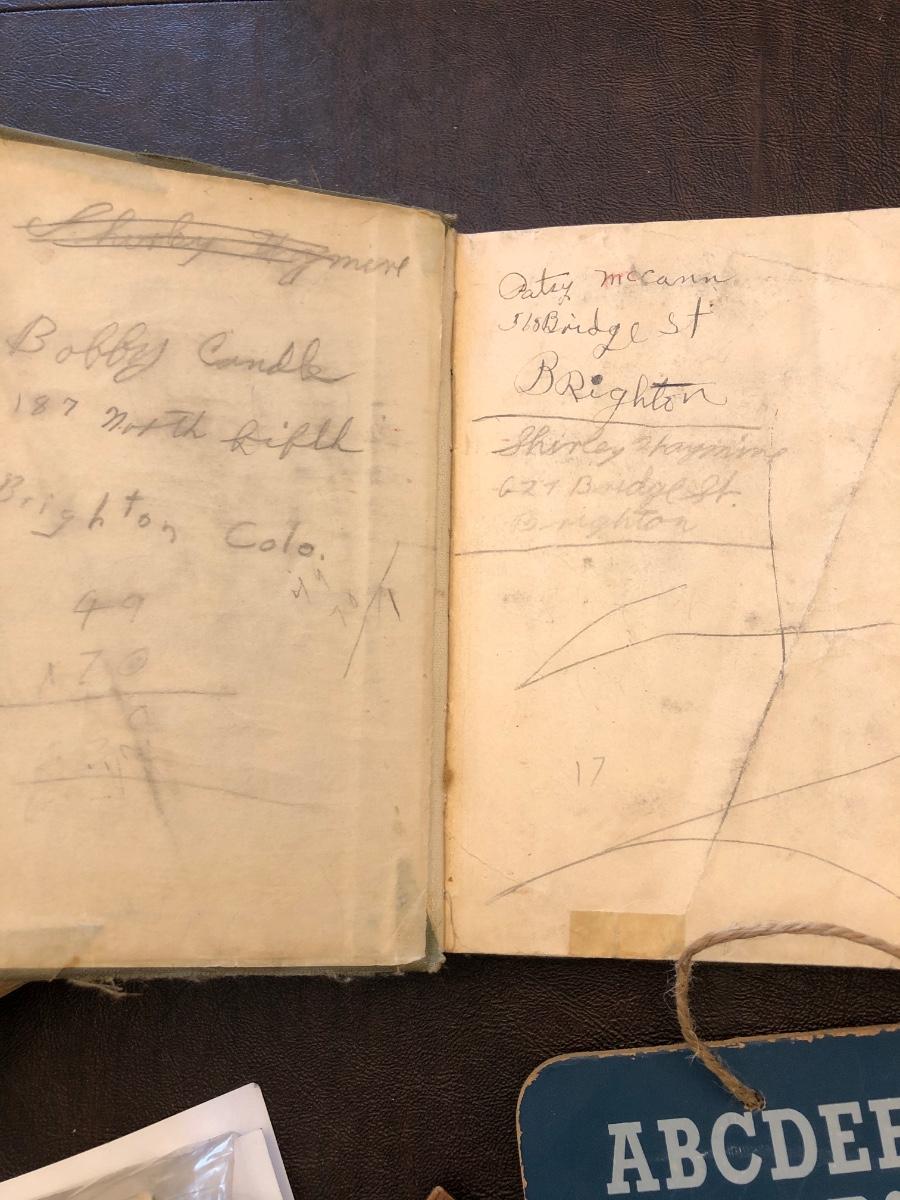 Shirley
Bobby Candle
187 North Fifth
Brighton Colo.
49
x 70
0
Patsy McCann
510 Bridge St
BRighton
Shirley
627 Bridge St.
Brighton
17
ABCDEF